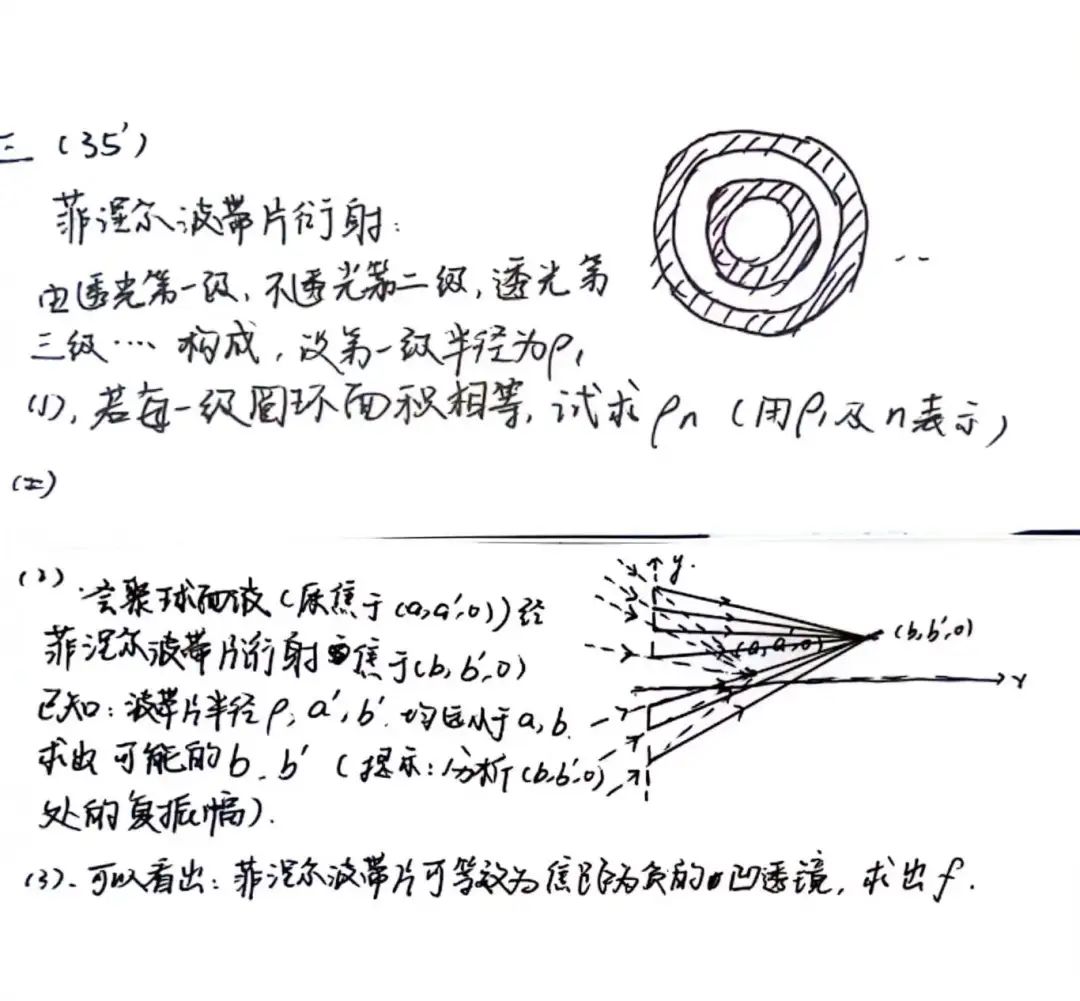 三 (35')
菲涅尔波带片衍射:
由透光第一级, 不透光第二级, 透光第
三级… 构成, 设第一级半径为ρ₁
(1), 若每一级圆环面积相等, 试求 ρn (用ρ₁及n表示)
(2)
(2) 会聚球面波 (原焦于 (a,a',0)) 经
菲涅尔波带片衍射焦于(b, b',0)
已知: 波带片半径ρ, a', b' 均远小于a, b.
求出可能的b、b' (提示: 分析(b,b',0)
处的复振幅).
y.
(a,a',0)
(b,b',0)
x
(3). 可以看出: 菲涅尔波带片可等效为焦距为负的凹透镜, 求出 f.